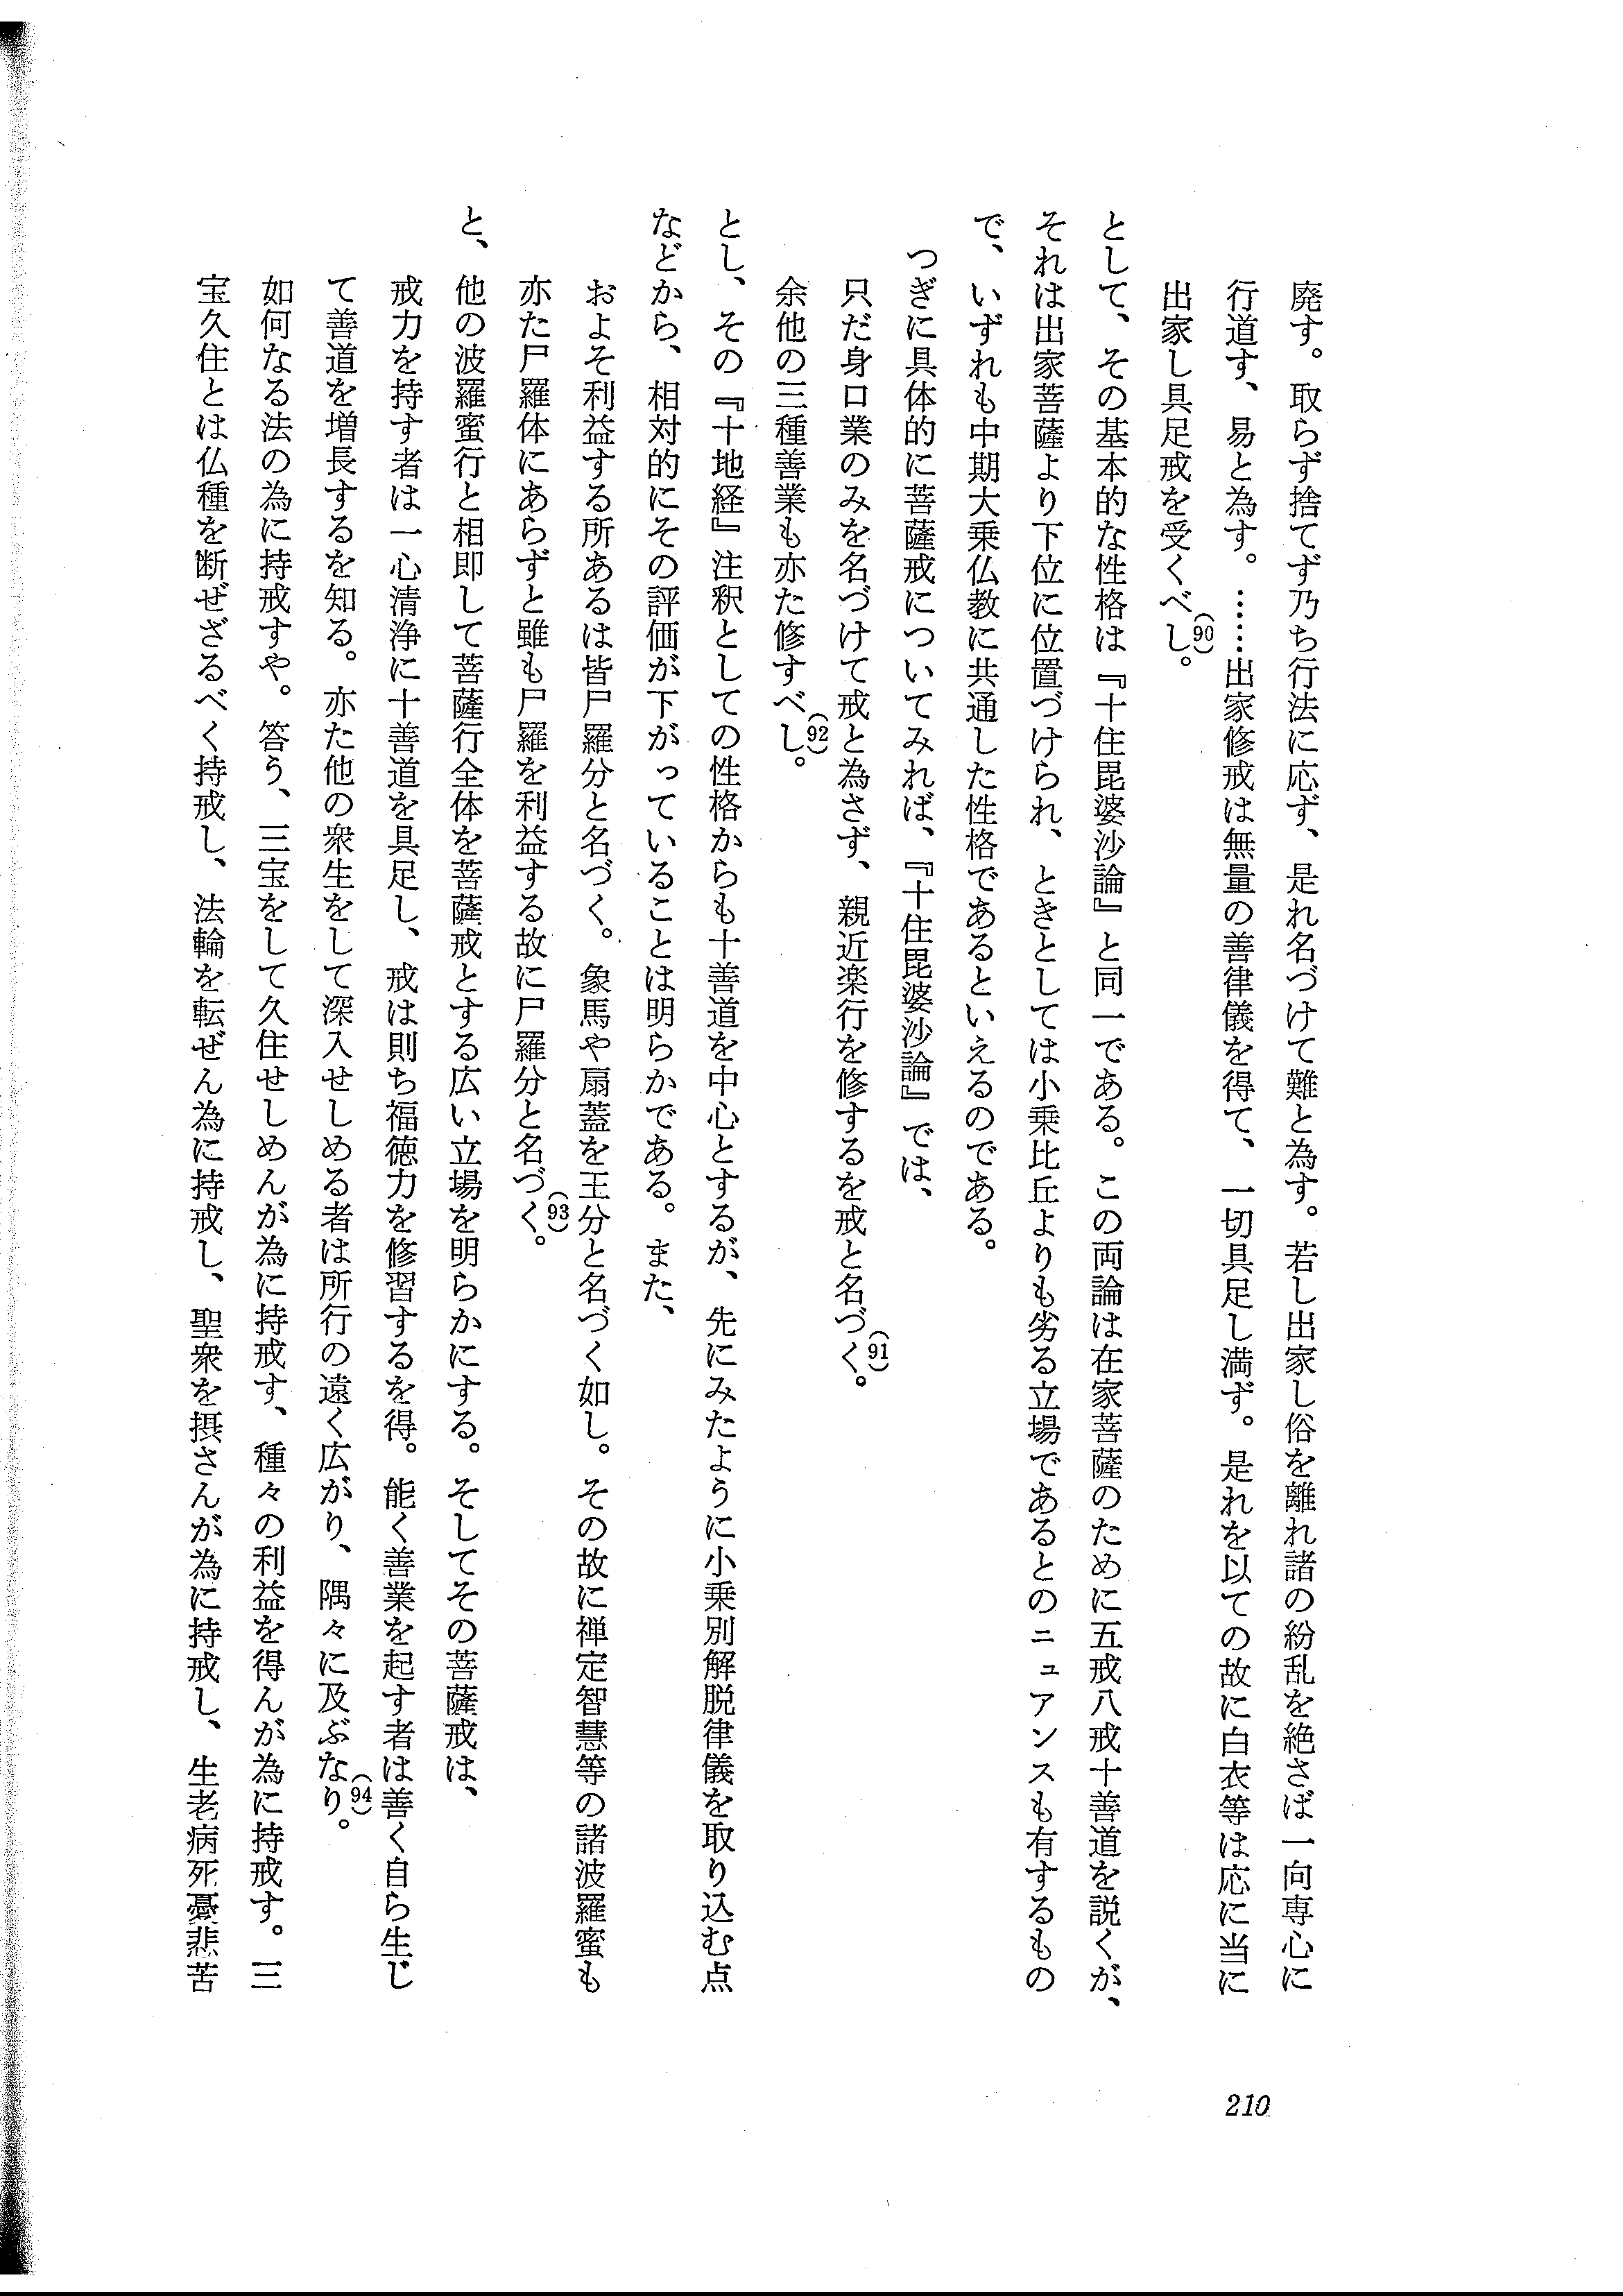 廃す。取らず捨てず乃ち行法に応ず、是れ名づけて難と為す。若し出家し俗を離れ諸の紛乱を絶さば一向専心に
行道す、易と為す。……出家修戒は無量の善律儀を得て、一切具足し満ず。是れを以ての故に白衣等は応に当に
出家し具足戒を受くべし。(90)
として、その基本的な性格は『十住毘婆沙論』と同一である。この両論は在家菩薩のために五戒八戒十善道を説くが、
それは出家菩薩より下位に位置づけられ、ときとしては小乗比丘よりも劣る立場であるとのニュアンスも有するもの
で、いずれも中期大乗仏教に共通した性格であるといえるのである。
つぎに具体的に菩薩戒についてみれば、『十住毘婆沙論』では、
只だ身口業のみを名づけて戒と為さず、親近楽行を修するを戒と名づく。(91)
余他の三種善業も亦た修すべし。(92)
とし、その『十地経』注釈としての性格からも十善道を中心とするが、先にみたように小乗別解脱律儀を取り込む点
などから、相対的にその評価が下がっていることは明らかである。また、
およそ利益する所あるは皆尸羅分と名づく。象馬や扇蓋を王分と名づく如し。その故に禅定智慧等の諸波羅蜜も
亦た尸羅体にあらずと雖も尸羅を利益する故に尸羅分と名づく。(93)
と、他の波羅蜜行と相即して菩薩行全体を菩薩戒とする広い立場を明らかにする。そしてその菩薩戒は、
戒力を持す者は一心清浄に十善道を具足し、戒は則ち福徳力を修習するを得。能く善業を起す者は善く自ら生じ
て善道を増長するを知る。亦た他の衆生をして深入せしめる者は所行の遠く広がり、隅々に及ぶなり。(94)
如何なる法の為に持戒すや。答う、三宝をして久住せしめんが為に持戒す、種々の利益を得んが為に持戒す。三
宝久住とは仏種を断ぜざるべく持戒し、法輪を転ぜん為に持戒し、聖衆を摂さんが為に持戒し、生老病死憂悲苦
210